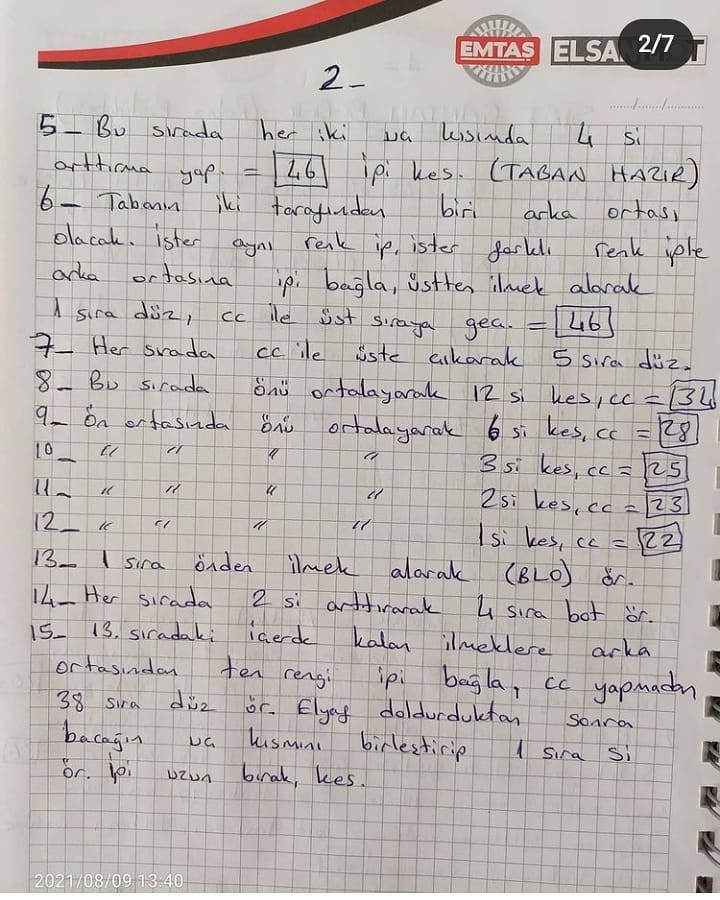 EMTAŞ ELSAN 2/7 T
2-
...../...../..........
5- Bu sırada her iki uç kısımda 4 si
arttırma yap. = 46 ipi kes. (TABAN HAZIR)
6- Tabanın iki tarafından biri arka ortası
olacak. İster aynı renk ip, ister farklı renk iple
arka ortasına ipi bağla, üstten ilmek alarak
1 sıra düz, cc ile üst sıraya geç. = 46
7- Her sırada cc ile üste çıkarak 5 sıra düz.
8- Bu sırada önü ortalayarak 12 si kes, cc = 34
9- Ön ortasında önü ortalayarak 6 si kes, cc = 28
10- " " " " 3 si kes, cc = 25
11- " " " " 2 si kes, cc = 23
12- " " " " 1 si kes, cc = 22
13- 1 sıra önden ilmek alarak (BLO) ör.
14- Her sırada 2 si arttırarak 4 sıra bot ör.
15- 13. sıradaki içerde kalan ilmeklere arka
ortasından ten rengi ipi bağla, cc yapmadan
38 sıra düz ör. Elyaf doldurduktan sonra
bacağın uç kısmını birleştirip 1 sıra si
ör. İpi uzun bırak, kes.
2021/08/09 13:40